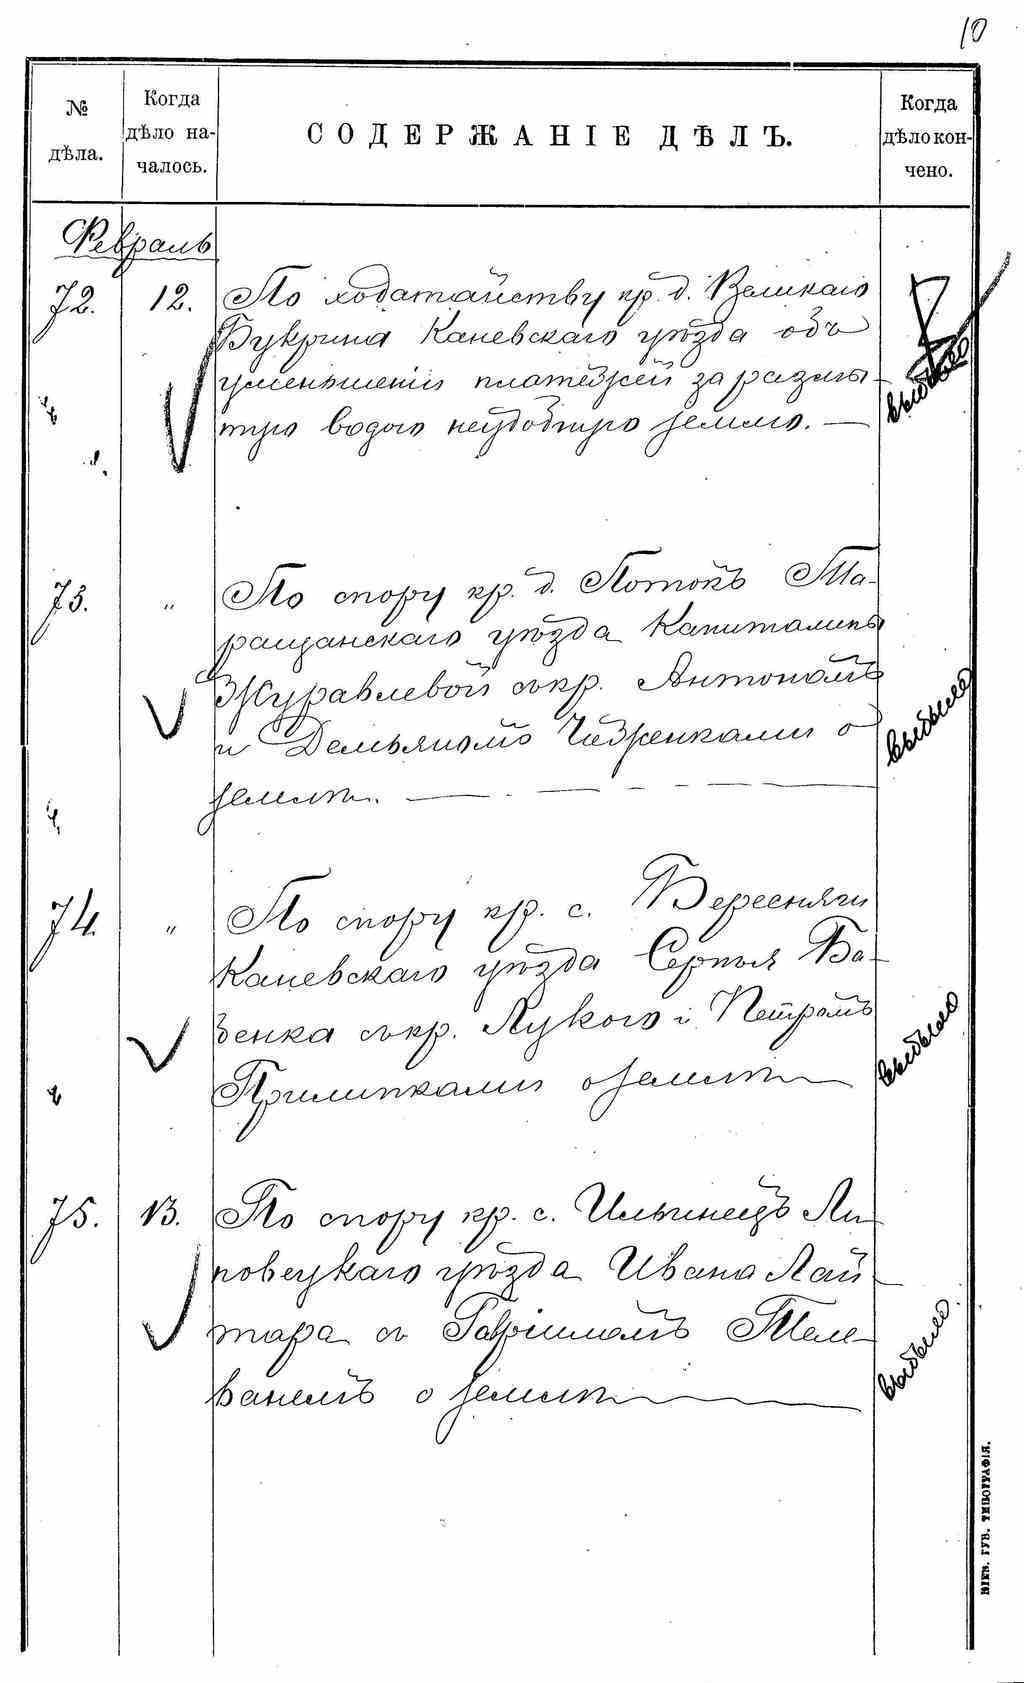 10
№ дѣла.
Когда дѣло началось.
СОДЕРЖАНІЕ ДѢЛЪ.
Когда дѣло кончено.
Февраль
72. 12. По ходатайству кр. д. Великаго
Букрина Каневскаго уѣзда объ
уменьшеніи платежей за размы-
тую водою неудобную землю. —
выбыло
73. " По спору кр. д. Потокъ Та-
ращанскаго уѣзда Капиталины
Журавлевой съ кр. Антономъ
и Демьяномъ о
землѣ.
выбыло
74. " По спору кр. с. Березняги
Каневскаго уѣзда Сергѣя Ба-
бенка съ кр. Лукою і Петромъ
Прилипками о землѣ
выбыло
75. 13. По спору кр. с. Ильинецъ Ли-
повецкаго уѣзда Ивана Лай-
тара съ Гавріиломъ Теле-
ванемъ о землѣ
выбыло.
КІЕВ. ГУБ. ТИПОГРАФІЯ.